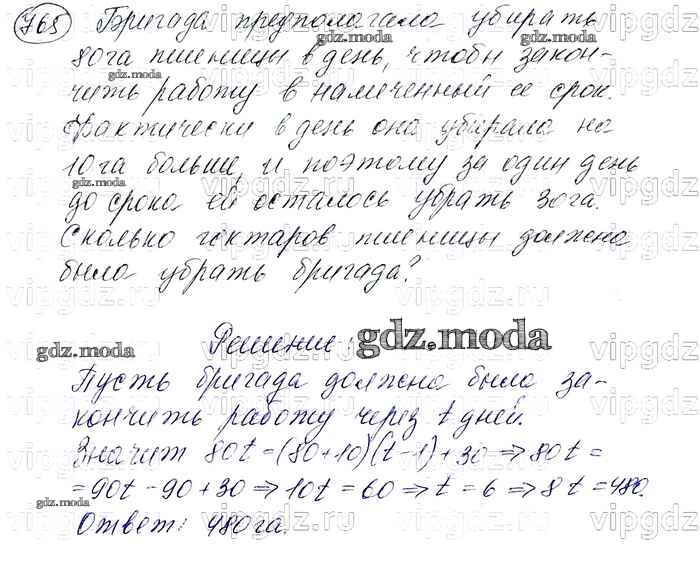 768 Бригада предполагала убирать
80га пшеницы в день, чтобы закон-
gdz.moda
чить работу в намеченный ее срок.
Фактически в день она убирала на
10га больше, и поэтому за один день
gdz.moda
до срока ей осталось убрать 30га.
Сколько гектаров пшеницы должна
была убрать бригада?
gdz.moda
Решение:
gdz.moda
gdz.moda
Пусть бригада должна была за-
кончить работу через t дней.
Значит 80t=(80+10)(t-1)+30⇒80t=
=90t-90+30⇒10t=60⇒t=6⇒8t=480.
gdz.moda
Ответ: 480га.
vipgdz.ru